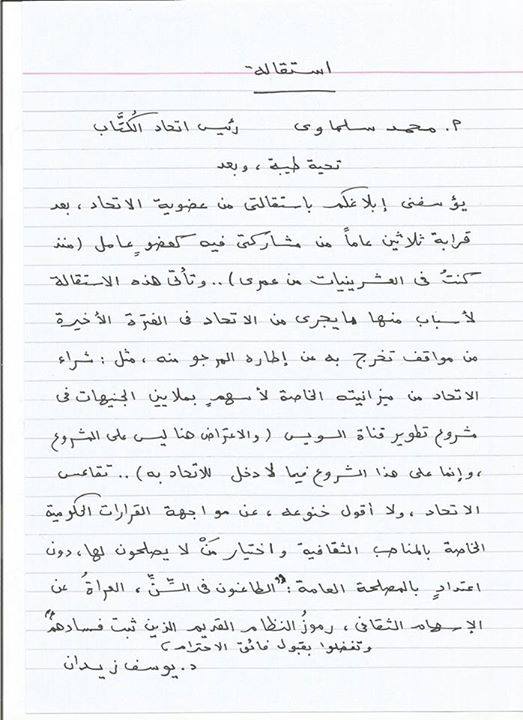 استقالة
م. محمد سلماوى رئيس اتحاد الكُتَّاب
تحية طيبة ، وبعد
يؤسفنى إبلاغكم باستقالتى من عضوية الاتحاد ، بعد
قرابة ثلاثين عاماً من مشاركتى فيه كعضوٍ عامل (منذ
كنتُ فى العشرينيات من عمرى) .. وتأتى هذه الاستقالة
لأسباب منها ما يجرى من الاتحاد فى الفترة الأخيرة
من مواقف تخرج به عن إطاره المرجو منه ، مثل : شراء
الاتحاد من ميزانيته الخاصة لأسهمٍ بملايين الجنيهات فى
مشروع تطوير قناة السويس (والاعتراض هنا ليس على المشروع
، وإنما على هذا الشروع فيما لا دخل للاتحاد به) .. تقاعس
الاتحاد ، ولا أقول خنوعه ، عن مواجهة القرارات الحكومية
الخاصة بالمناصب الثقافية واختيار مَنْ لا يصلحون لها ، دون
اعتدادٍ بالمصلحة العامة : "الطاعنون فى السِّنِّ ، العراةُ عن
الإسهام الثقافى ، رموزُ النظام القديم الذين ثبت فسادهم"
وتفضلوا بقبول فائق الاحترام ،
د. يوسف زيدان